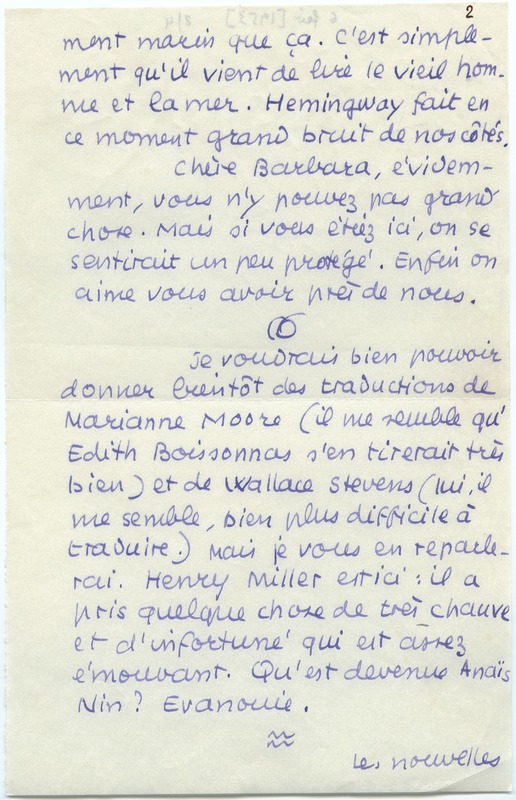 2
ment marin que ça. C'est simple-
ment qu'il vient de lire le vieil hom-
me et la mer. Hemingway fait en
ce moment grand bruit de nos côtés.
Chère Barbara, évidem-
ment, vous n'y pouvez pas grand
chose. Mais si vous étiez ici, on se
sentirait un peu protégé. Enfin on
aime vous avoir près de nous.
Je voudrais bien pouvoir
donner bientôt des traductions de
Marianne Moore (il me semble qu'
Edith Boissonnas s'en tirerait très
bien) et de Wallace Stevens (lui, il
me semble, bien plus difficile à
traduire.) Mais je vous en reparle-
rai. Henry Miller est ici : il a
pris quelque chose de très chauve
et d'infortuné qui est assez
émouvant. Qu'est devenue Anaïs
Nin ? Evanouie.
Les nouvelles